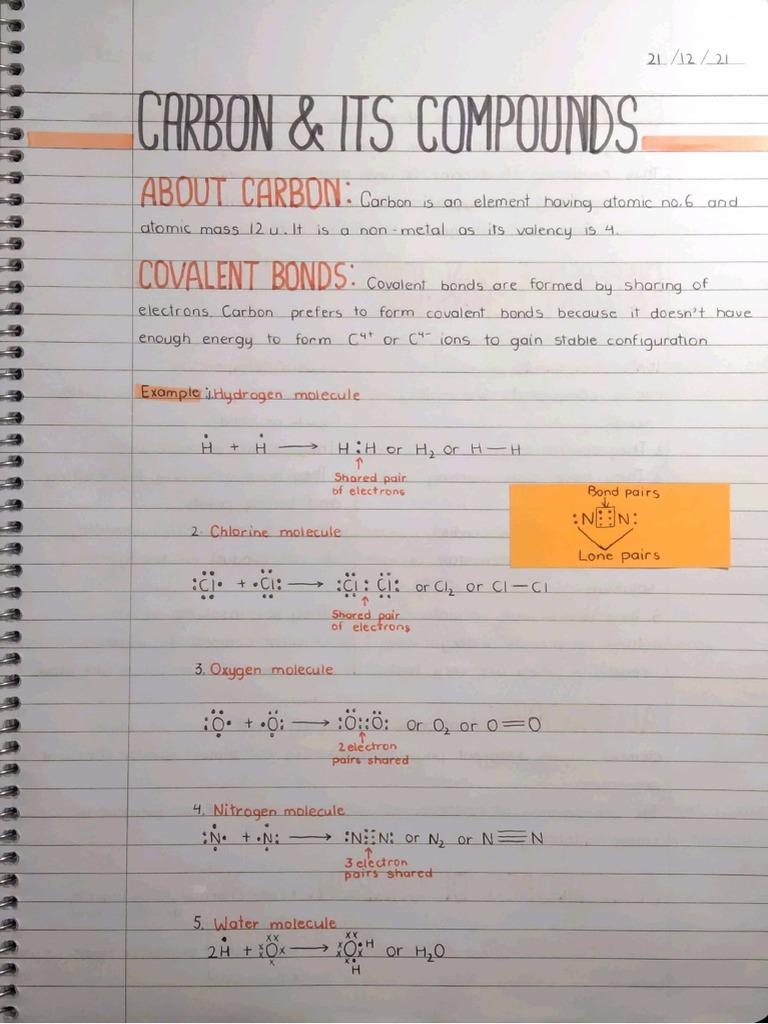 21/12/21
CARBON & ITS COMPOUNDS
ABOUT CARBON: Carbon is an element having atomic no.6 and
atomic mass 12 u. It is a non-metal as its valency is 4.
COVALENT BONDS: Covalent bonds are formed by sharing of
electrons. Carbon prefers to form covalent bonds because it doesn't have
enough energy to form C⁴⁺ or C⁴⁻ ions to gain stable configuration
Example :1.Hydrogen molecule
Ḣ + Ḣ ⟶ H:H or H₂ or H—H
↑
Shared pair
of electrons
Bond pairs
↓
:N⋮⋮N:
Lone pairs
2. Chlorine molecule
:Cl• + •Cl: ⟶ :Cl:Cl: or Cl₂ or Cl—Cl
↑
Shared pair
of electrons
3. Oxygen molecule
:O• + •O: ⟶ :O::O: or O₂ or O═O
↑
2 electron
pairs shared
4. Nitrogen molecule
:N• + •N: ⟶ :N⋮⋮N: or N₂ or N≡N
↑
3 electron
pairs shared
5. Water molecule
xx xx
2Ḣ + xxOx ⟶ xxOx•H or H₂O
x x•
H